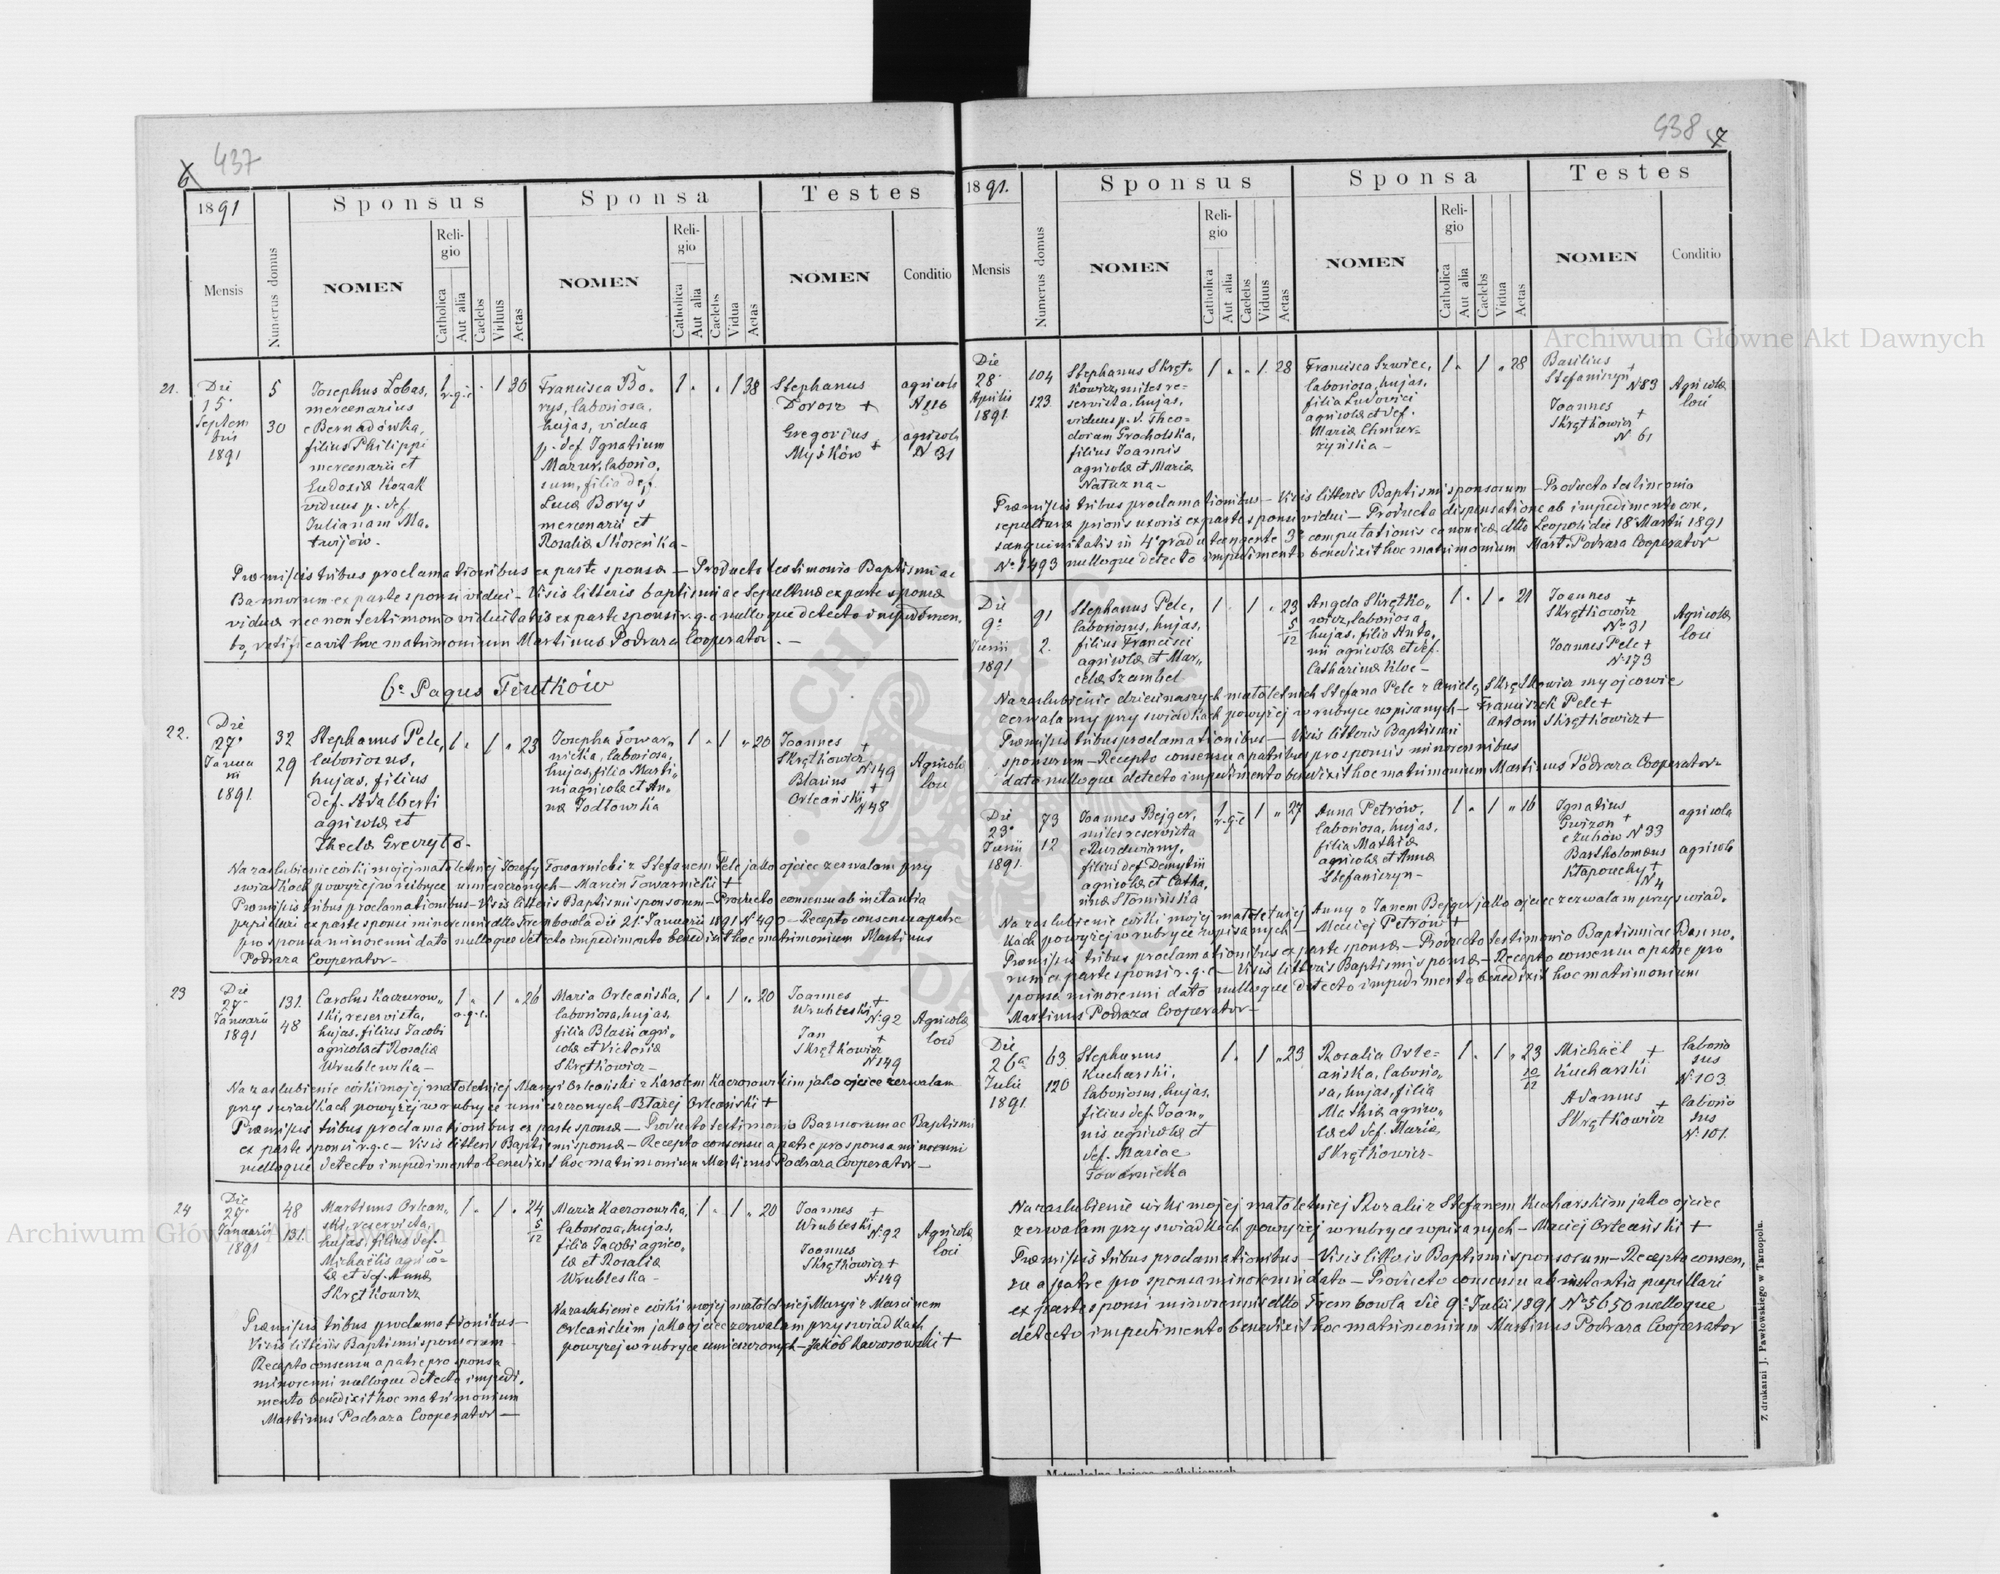 437
6
1891
Sponsus
Sponsa
Testes
Mensis
Numerus domus
NOMEN
Religio
Catholica
Aut alia
Caelebs
Viduus
Aetas
NOMEN
Religio
Catholica
Aut alia
Caelebs
Vidua
Aetas
NOMEN
Conditio
21.
Die
15a
Septem
bris
1891
5
30
Josephus Lobas,
mercenarius
e Bernadówka,
filius Philippi
mercenarii et
Eudoxiæ Kozak
viduus p. def.
Julianam Ma-
twijów.
1
r.g.c
"
1
30
Francisca Bo-
rys, laboriosa,
hujas, vidua
p. def Ignatium
Mazur, laborio,
sum, filia def.
Lucæ Borys
mercenarii et
Rosaliæ Skoreńka-
1
"
"
1
38
Stephanus
Dorosz +
Gregorius
Myśków +
agricola
N 116
agricola
N 31
Præmissis tribus proclamationibus ex parte sponsæ — Producto testimonio Baptismi ac
Bannorum ex parte sponsi vidui - Visis litteris baptismi ac sepulturæ ex parte sponsæ
viduæ nec non testimonio viduitatis ex parte sponsi r.g.c nulloque detecto impedimen,
to, ratificavit hoc matrimonium Martinus Podraza Cooperator. —
6a Pagus Tiutków
22.
Die
27a
Janua
rii
1891
32
29
Stephanus Pelc,
laboriosus,
hujas, filius
def. Adalberti
agricolæ et
Theclæ Grevryto-
1
"
1
"
23
Josepha Towar,,
nicka, laboriosa,
hujas, filia Marti,,
ni agricolæ et An,,
næ Jodłowska
1
"
1
"
20
Joannes +
Skrętkowicz
N 149
Blasius +
Orleański
N 48
Agricolæ
loci
Na zaślubienie córki mojej małoletniej Józefy Towarnicki z Stefanem Pelc jako ojciec zezwalam przy
swiadkach powyżej w rubryce umieszczonych — Marcin Towarnicki +
Præmissis tribus proclamationibus - Visis litteris Baptismi sponsorum — Producto consensu ab instantia
pupillari ex parte sponsi minorenni ddto Trembowla die 21a Januarii 1891 N 490 - Recepto consensu a patre
pro sponsa minorenni dato nulloque detecto impedimento benedixit hoc matrimonium Martinus
Podraza Cooperator -
23
Die
27a
Januarii
1891
131.
48
Carolus Kaczorow,,
ski, reservista,
hujas, filius Jacobi
agricolæ et Rosaliæ
Wrublewska -
1
r.g.c.
"
1
"
26
Maria Orleańska,
laboriosa, hujas,
filia Blasii agri,,
colæ et Victoriæ
Skrętkowicz -
1
"
1
"
20
Joannes +
Wrubleski
N. 92
Jan +
Skrętkowicz
N 149
Agricolæ
loci
Na zaslubienie córki mojej małoletniej Maryi Orleański z Karolem Kaczorowskim jako ojciec zezwalam
przy swiadkach powyżej w rubryce umieszczonych - Błażej Orleański +
Præmissis tribus proclamationibus ex parte sponsæ — Producto testimonio Bannorum ac Baptismi
ex parte sponsi r.g.c — Visis litteris Baptismi sponsæ — Recepto consensu a patre pro sponsa minorenni
nulloque detecto impedimento benedixit hoc matrimonium Martinus Podraza Cooperator —
24
Die
27a
Januarii
1891
48
131.
Martinus Orlean,,
ski, reservista,
hujas, filius def.
Michaëlis agrico-
læ et def. Annæ
Skrętkowicz
1
"
1
"
24
5
12
Maria Kaczorowska,
laboriosa, hujas,
filia Jacobi agrico,
læ et Rosaliæ
Wrubleska -
1
"
1
"
20
Joannes +
Wrubleski
N. 92
Joannes
Skrętkowicz +
N 149
Agricolæ
loci
Præmissis tribus proclamationibus —
Visis litteris Baptismi sponsorum
Recepto consensu a patre pro sponsa
minorenni nulloque detecto impedi,
mento benedixit hoc matrimonium
Martinus Podraza Cooperator —
Na zaslubienie córki mojej małoletniej Maryi z Marcinem
Orleańskim jako ojciec zezwalam przy swiadkach
powyżej w rubryce umieszczonych — Jakób Kaczorowski +
438
7
1891.
Sponsus
Sponsa
Testes
Mensis
Numerus domus
NOMEN
Religio
Catholica
Aut alia
Caelebs
Viduus
Aetas
NOMEN
Religio
Catholica
Aut alia
Caelebs
Vidua
Aetas
NOMEN
Conditio
Die
28a
Aprilis
1891
104
123.
Stephanus Skręt-
kowicz, miles re-
servista, hujas,
viduus p. d. Theo-
doram Grocholska,
filius Joannis
agricolæ et Mariæ
Naturzna -
1
"
"
1
28
Francisca Szwiec,
laboriosa, hujas,
filia Ludovici
agricolæ et def.
Mariæ Chmur-
zyńska -
1
"
1
"
28
Basilius +
Stefaniszyn
N 83
Joannes +
Skrętkowicz
N 61
Agricolæ
loci
Præmissis tribus proclamationibus — Visis litteris Baptismi sponsorum — Producto testimonio
sepulturæ prioris uxoris ex parte sponsi vidui — Producta dispensatione ab impedimento con,
sanguinitatis in 4o gradu tangente 3m computationis canonicæ ddto Leopoli die 18a Martii 1891
No 1493 nulloque detecto impedimento benedixit hoc matrimonium Mart: Podraza Cooperator
Die
9a
Junii
1891
91
2.
Stephanus Pelc,
laboriosus, hujas,
filius Francisci
agricolæ et Mar,,
celæ Szambel
1
"
1
"
23
5
12
Angela Skrętko,,
wicz, laboriosa,
hujas, filia Anto,
nii agricolæ et def.
Catharinæ Kloc -
1
"
1
"
21
Joannes +
Skrętkowicz
No 31
Joannes Pelc +
N. 173
Agricolæ
loci
Na zaslubienie dzieci naszych małoletnich Stefana Pelc z Anielą Skrętkowicz my ojcowie
zezwalamy przy swiadkach powyżej w rubryce wpisanych — Franciszek Pelc +
Antoni Skrętkowicz +
Præmissis tribus proclamationibus — Visis litteris Baptismi
sponsorum — Recepto consensu a patribus pro sponsis minorennibus
dato nulloque detecto impedimento benedixit hoc matrimonium Martinus Podraza Cooperator -
Die
23a
Junii
1891.
73
12
Joannes Bejger,
miles reservista
filius def. Demytrii
agricolæ et Catha,
rinæ Słomińska
1
r.g.c
1
"
27
Anna Petrów,
laboriosa, hujas,
filia Mathiæ
agricolæ et Annæ
Stefaniszyn -
1
"
1
"
16
Ignatius +
Gwizon
e Zubów N 33
Bartholomæus
Kłapouchy +
N 4
agricola
agricola
Na zaslubienie córki mojej małoletniej Anny z Janem Bejger jako ojciec zezwalam przy swiad,
kach powyżej w rubryce wpisanych — Maciej Petrów +
Præmissis tribus proclamationibus ex parte sponsæ — Producto testimonio Baptismi ac Banno,
rum ex parte sponsi r.g.c — Visis litteris Baptismi sponsæ — Recepto consensu a patre pro
sponsa minorenni dato nulloque detecto impedimento benedixit hoc matrimonium
Martinus Podraza Cooperator —
Die
26a
Julii
1891
63.
120
Stephanus
Kucharski,
laboriosus, hujas,
filius def. Joan,,
nis agricolæ et
def. Mariae
Towarnicka
1
"
1
"
23
Rosalia Orle-
ańska, laborio,
sa, hujas, filia
Mathiæ agrico,
læ et def. Mariæ
Skrętkowicz -
1
"
1
"
23
10
12
Michaël +
Kucharski
Adamus +
Skrętkowicz
laborio
sus
N. 103
laborio
sus
N. 101.
Na zaslubienie córki mojej małoletniej Rozalii z Stefanem Kucharskim jako ojciec
zezwalam przy swiadkach powyżej w rubryce wpisanych — Maciej Orleański +
Præmissis tribus proclamationibus — Visis litteris Baptismi sponsorum — Recepto consen,
su a patre pro sponsa minorenni dato — Producto consensu ab instantia pupillari
ex parte sponsi minorennis ddto Trembowla die 9a Julii 1891 No 5650 nulloque
detecto impedimento benedixit hoc matrimonium Martinus Podraza Cooperator
Z drukarni J. Pawłowskiego w Tarnopolu.
Archiwum Główne Akt Dawnych
Archiwum Główne Akt Dawnych